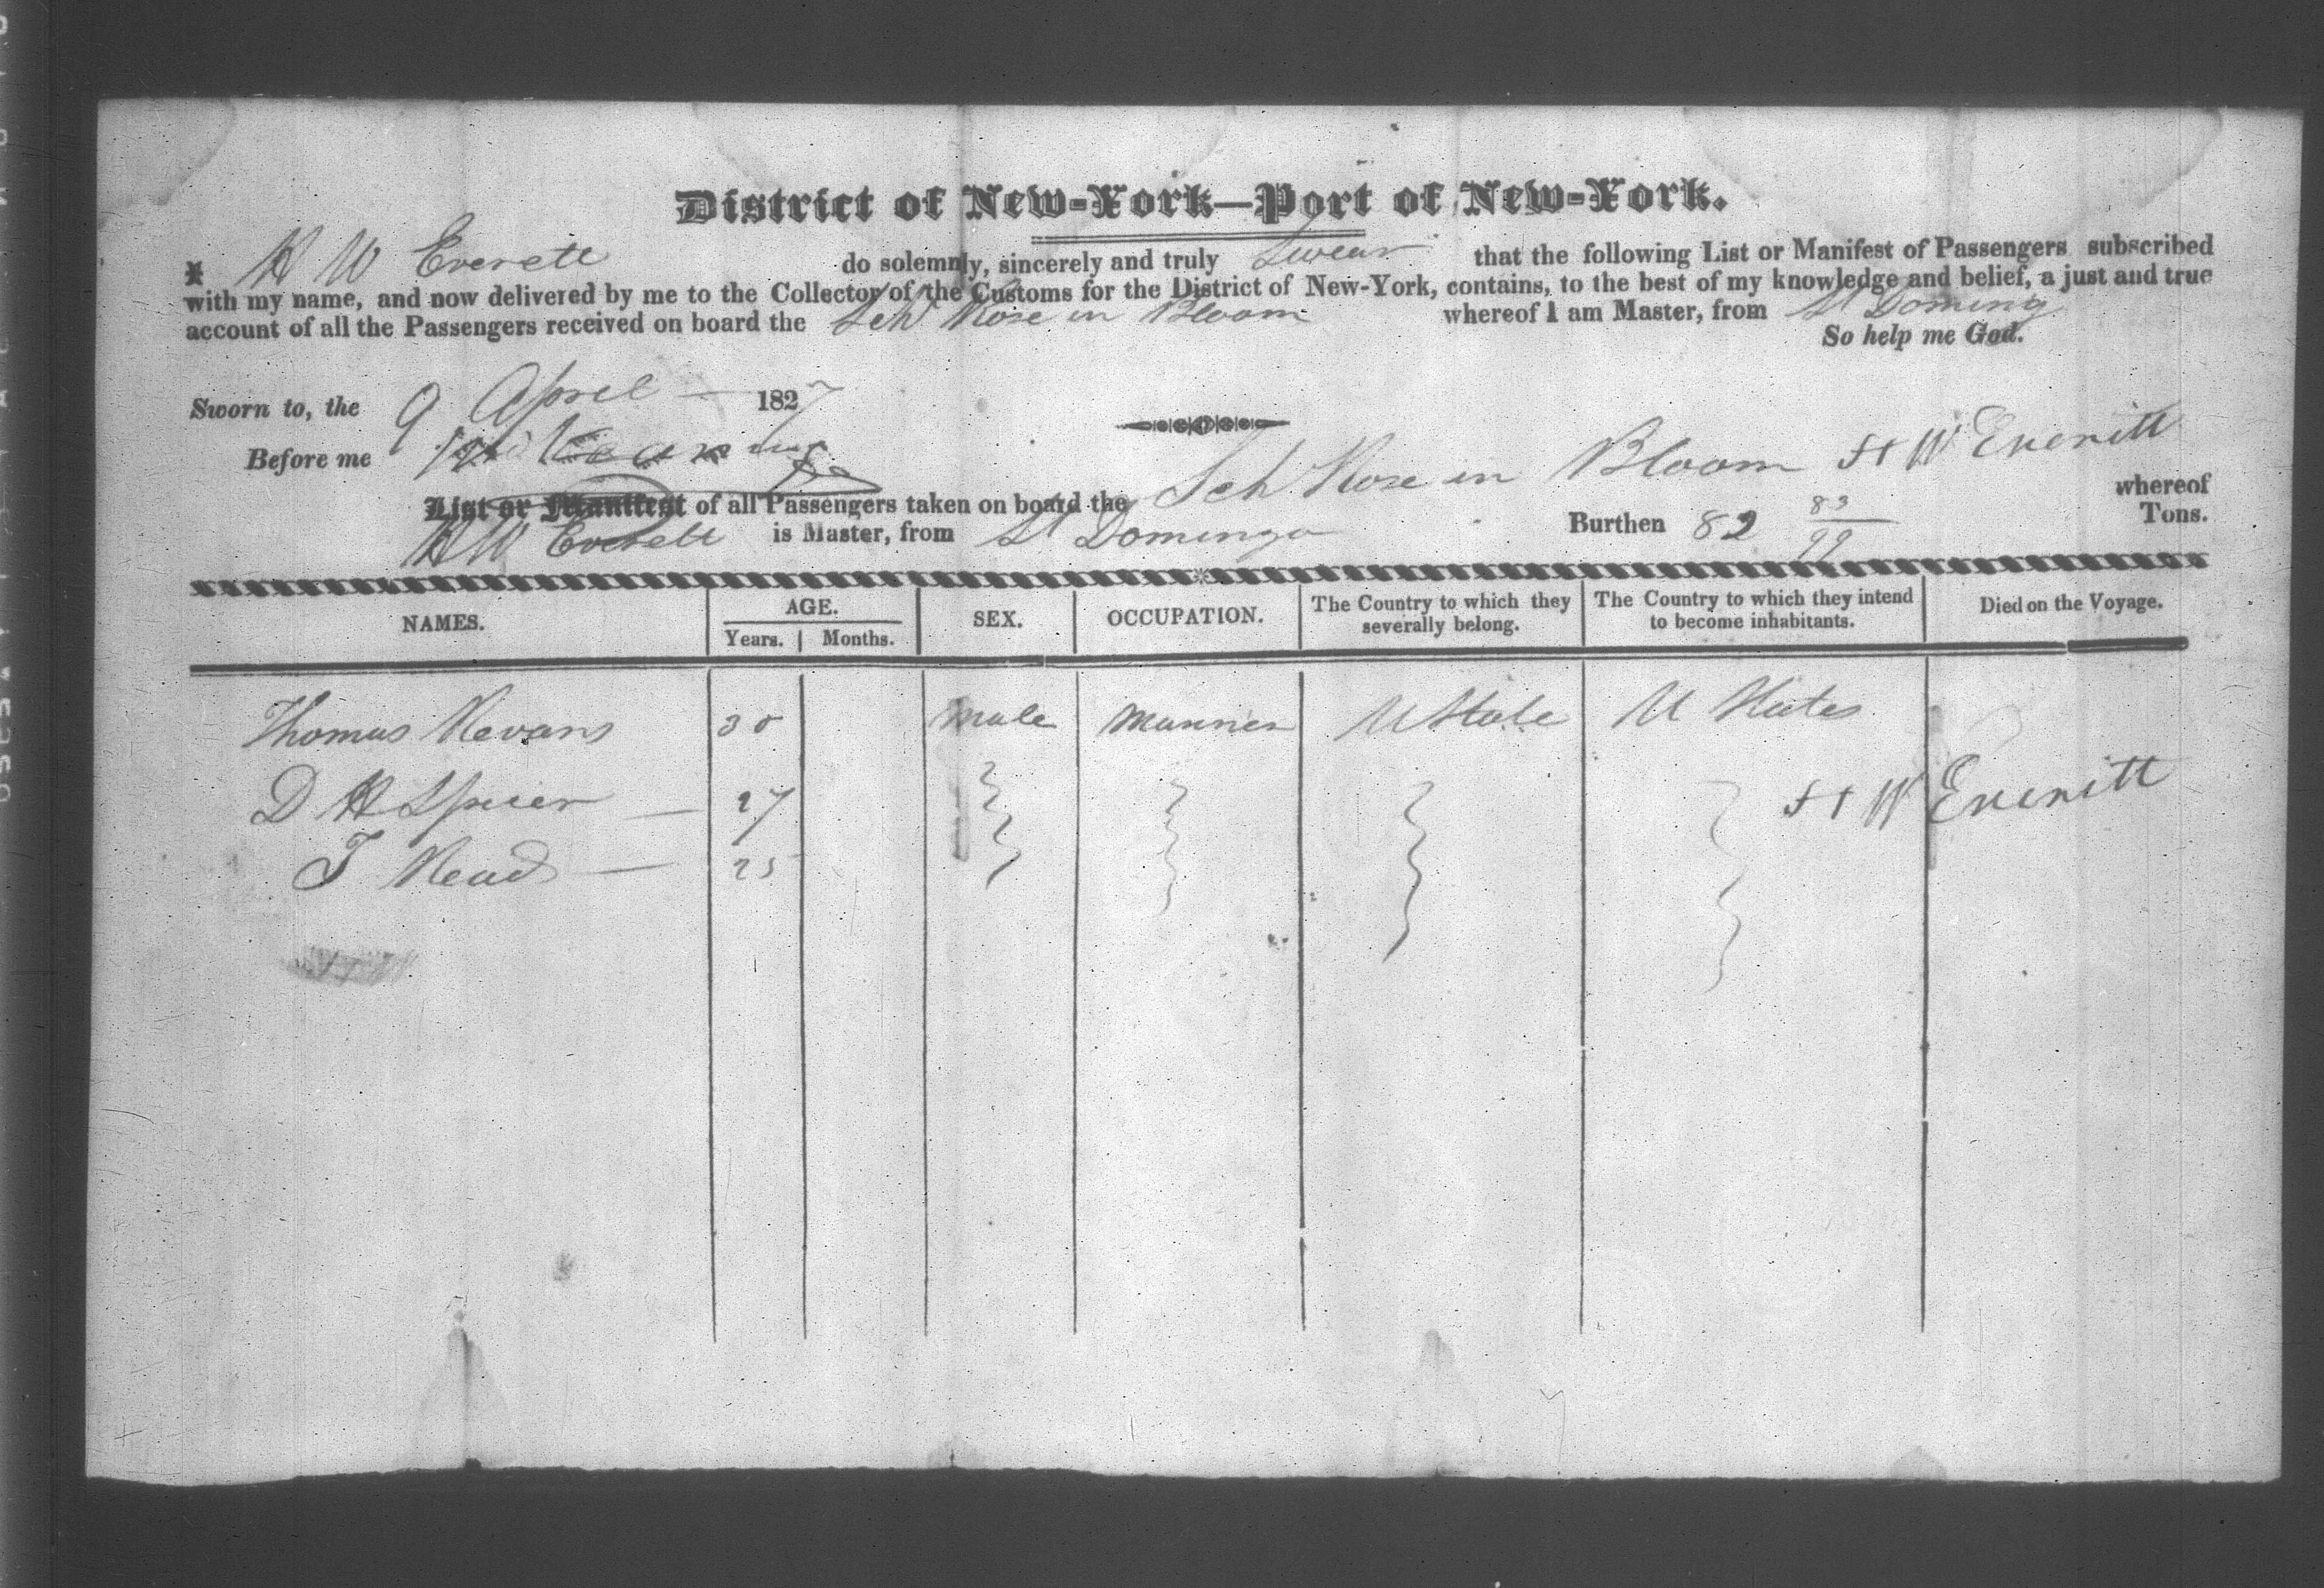 District of New-York—Port of New-York.
I H W Everett do solemnly, sincerely and truly Swear that the following List or Manifest of Passengers subscribed
with my name, and now delivered by me to the Collector of the Customs for the District of New-York, contains, to the best of my knowledge and belief, a just and true
account of all the Passengers received on board the Sch Rose in Bloom whereof I am Master, from St Doming
So help me God.
Sworn to, the 9 April 1827
Before me
Sch Rose in Bloom H W Everitt
List or Manifest of all Passengers taken on board the whereof
H W Everett is Master, from St Domingo Burthen 82 83/99 Tons.
NAMES. AGE. SEX. OCCUPATION. The Country to which they severally belong. The Country to which they intend to become inhabitants. Died on the Voyage.
Years. Months.
Thomas 30 Male Mariner U State U States
D H Spicer 27
H W Everitt
J 25